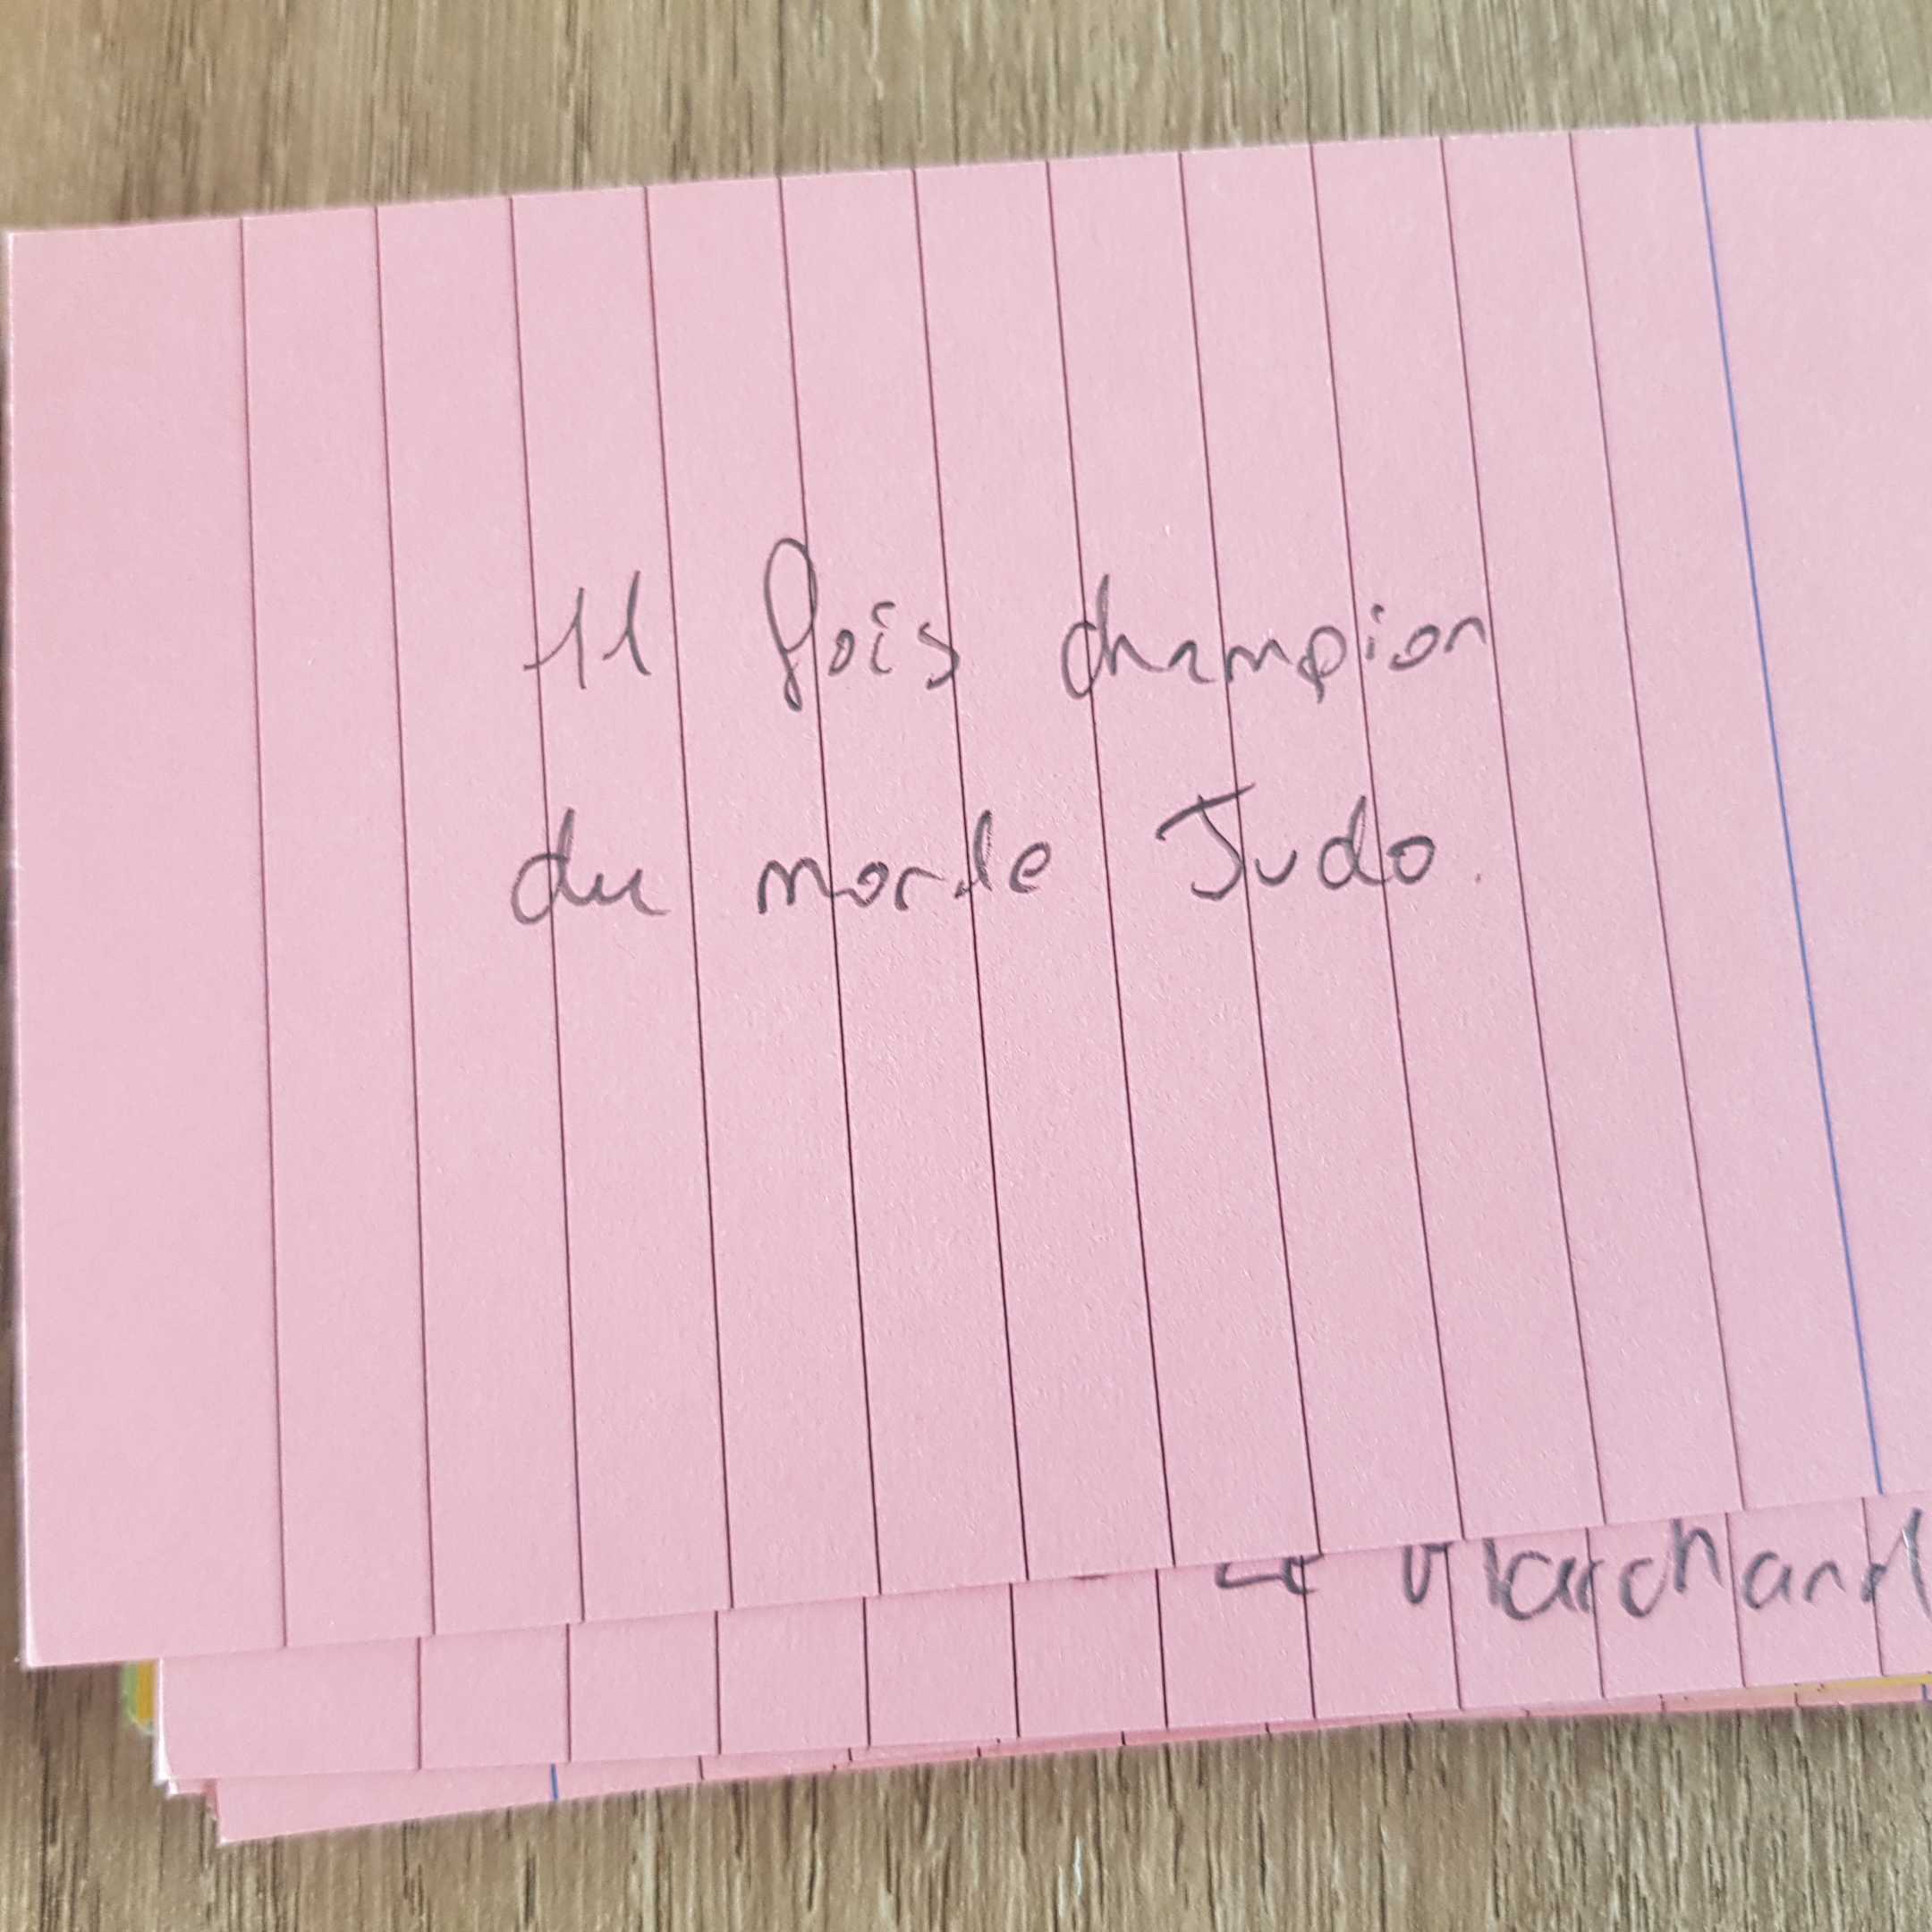 11 fois champion
du monde Judo.
Le Marchand